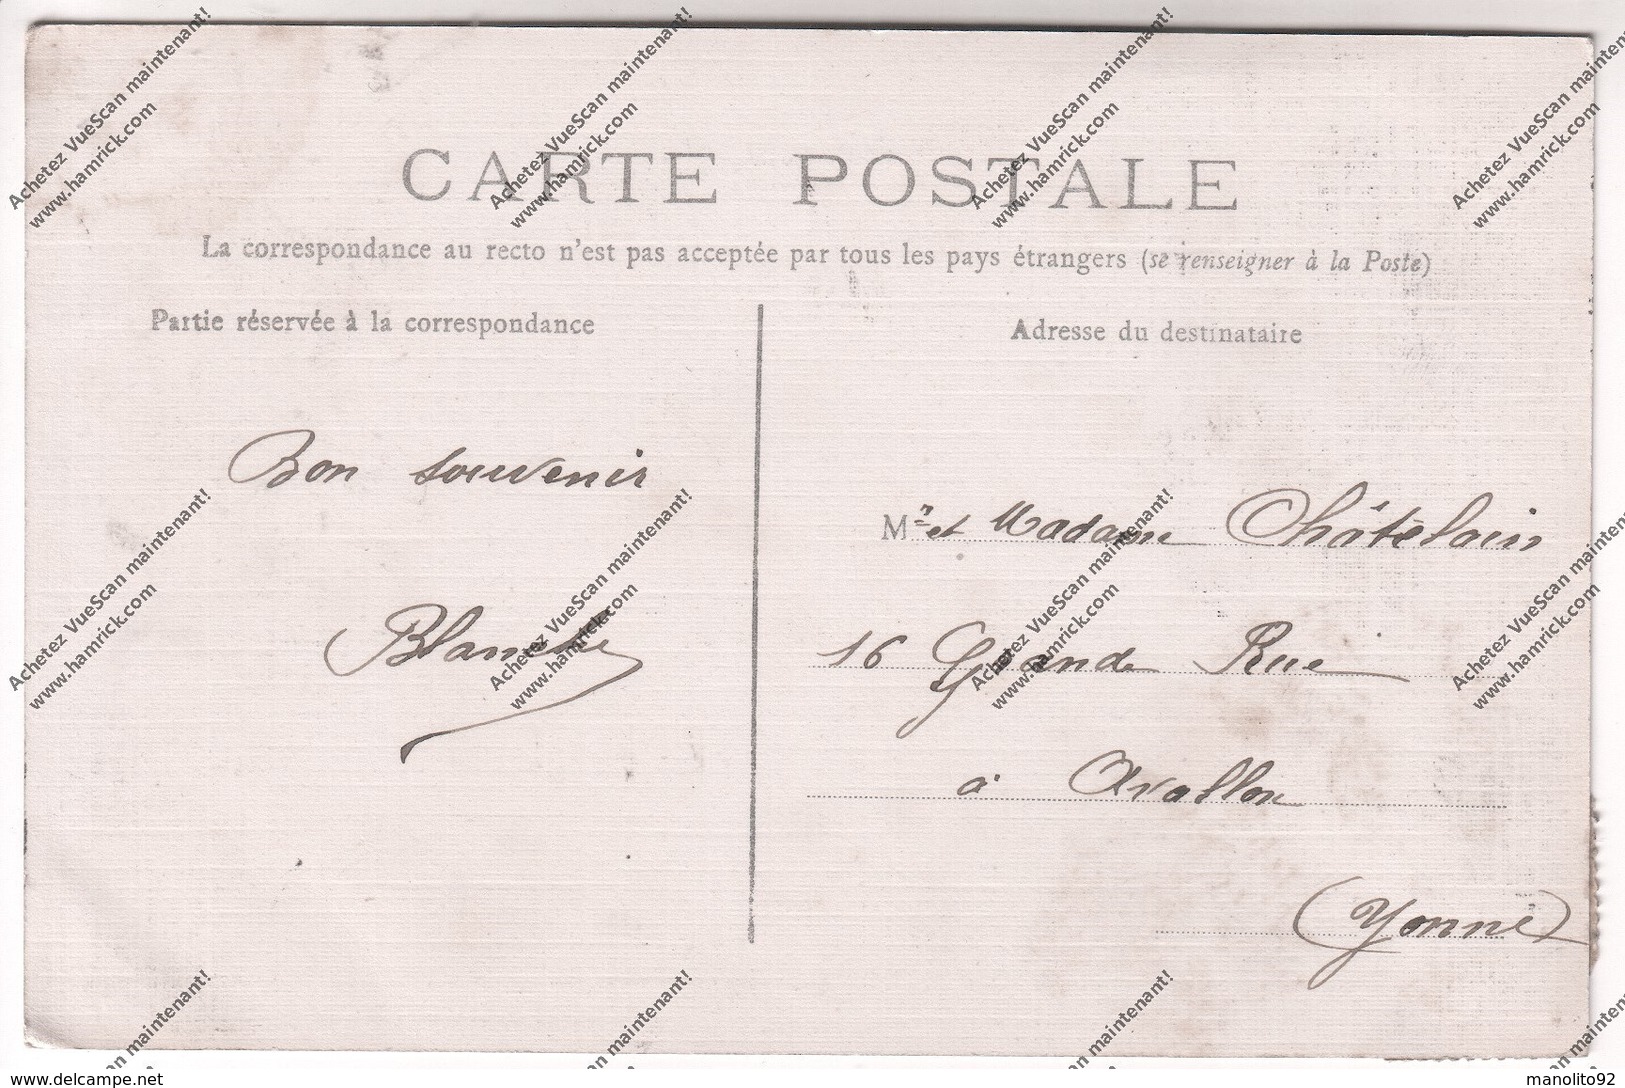 CARTE POSTALE
La correspondance au recto n'est pas acceptée par tous les pays étrangers (se renseigner à la Poste)
Partie réservée à la correspondance
Adresse du destinataire
Bon souvenir
Blanche
Mr et Madame Châtelain
16 Grande Rue
à Avallon
(Yonne)
Achetez VueScan maintenant!
www.hamrick.com
Achetez VueScan maintenant!
www.hamrick.com
Achetez VueScan maintenant!
www.hamrick.com
Achetez VueScan maintenant!
www.hamrick.com
Achetez VueScan maintenant!
www.hamrick.com
Achetez VueScan maintenant!
www.hamrick.com
Achetez VueScan maintenant!
www.hamrick.com
Achetez VueScan maintenant!
www.hamrick.com
can maintenant!
can maintenant!
can maintenant!
can maintenant!
www.delcampe.net
manolito92